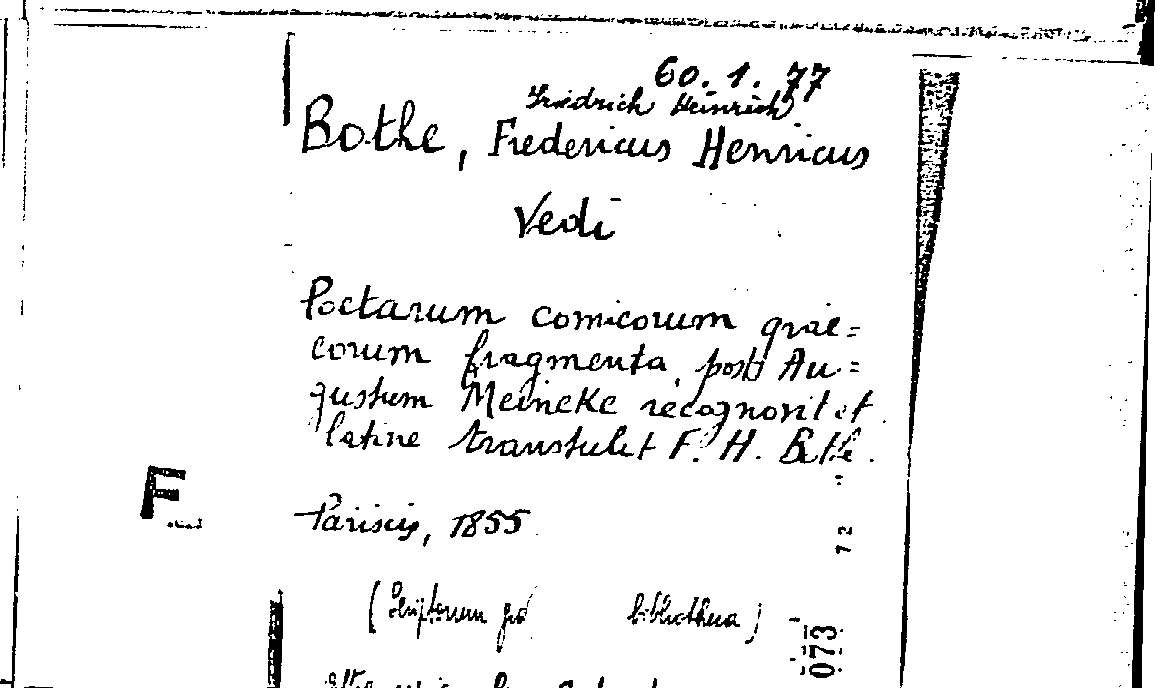 60.1.77
Friedrich Heinrich
Bothe, Fredericus Henricus
Vedi
Poetarum comicorum grae=
corum fragmenta, post Au=
gustum Meineke recognovit et
latine transtulit F. H. Bothe.
F
Parisiis, 1855
72
(Scriptorum bibliotheca)
073